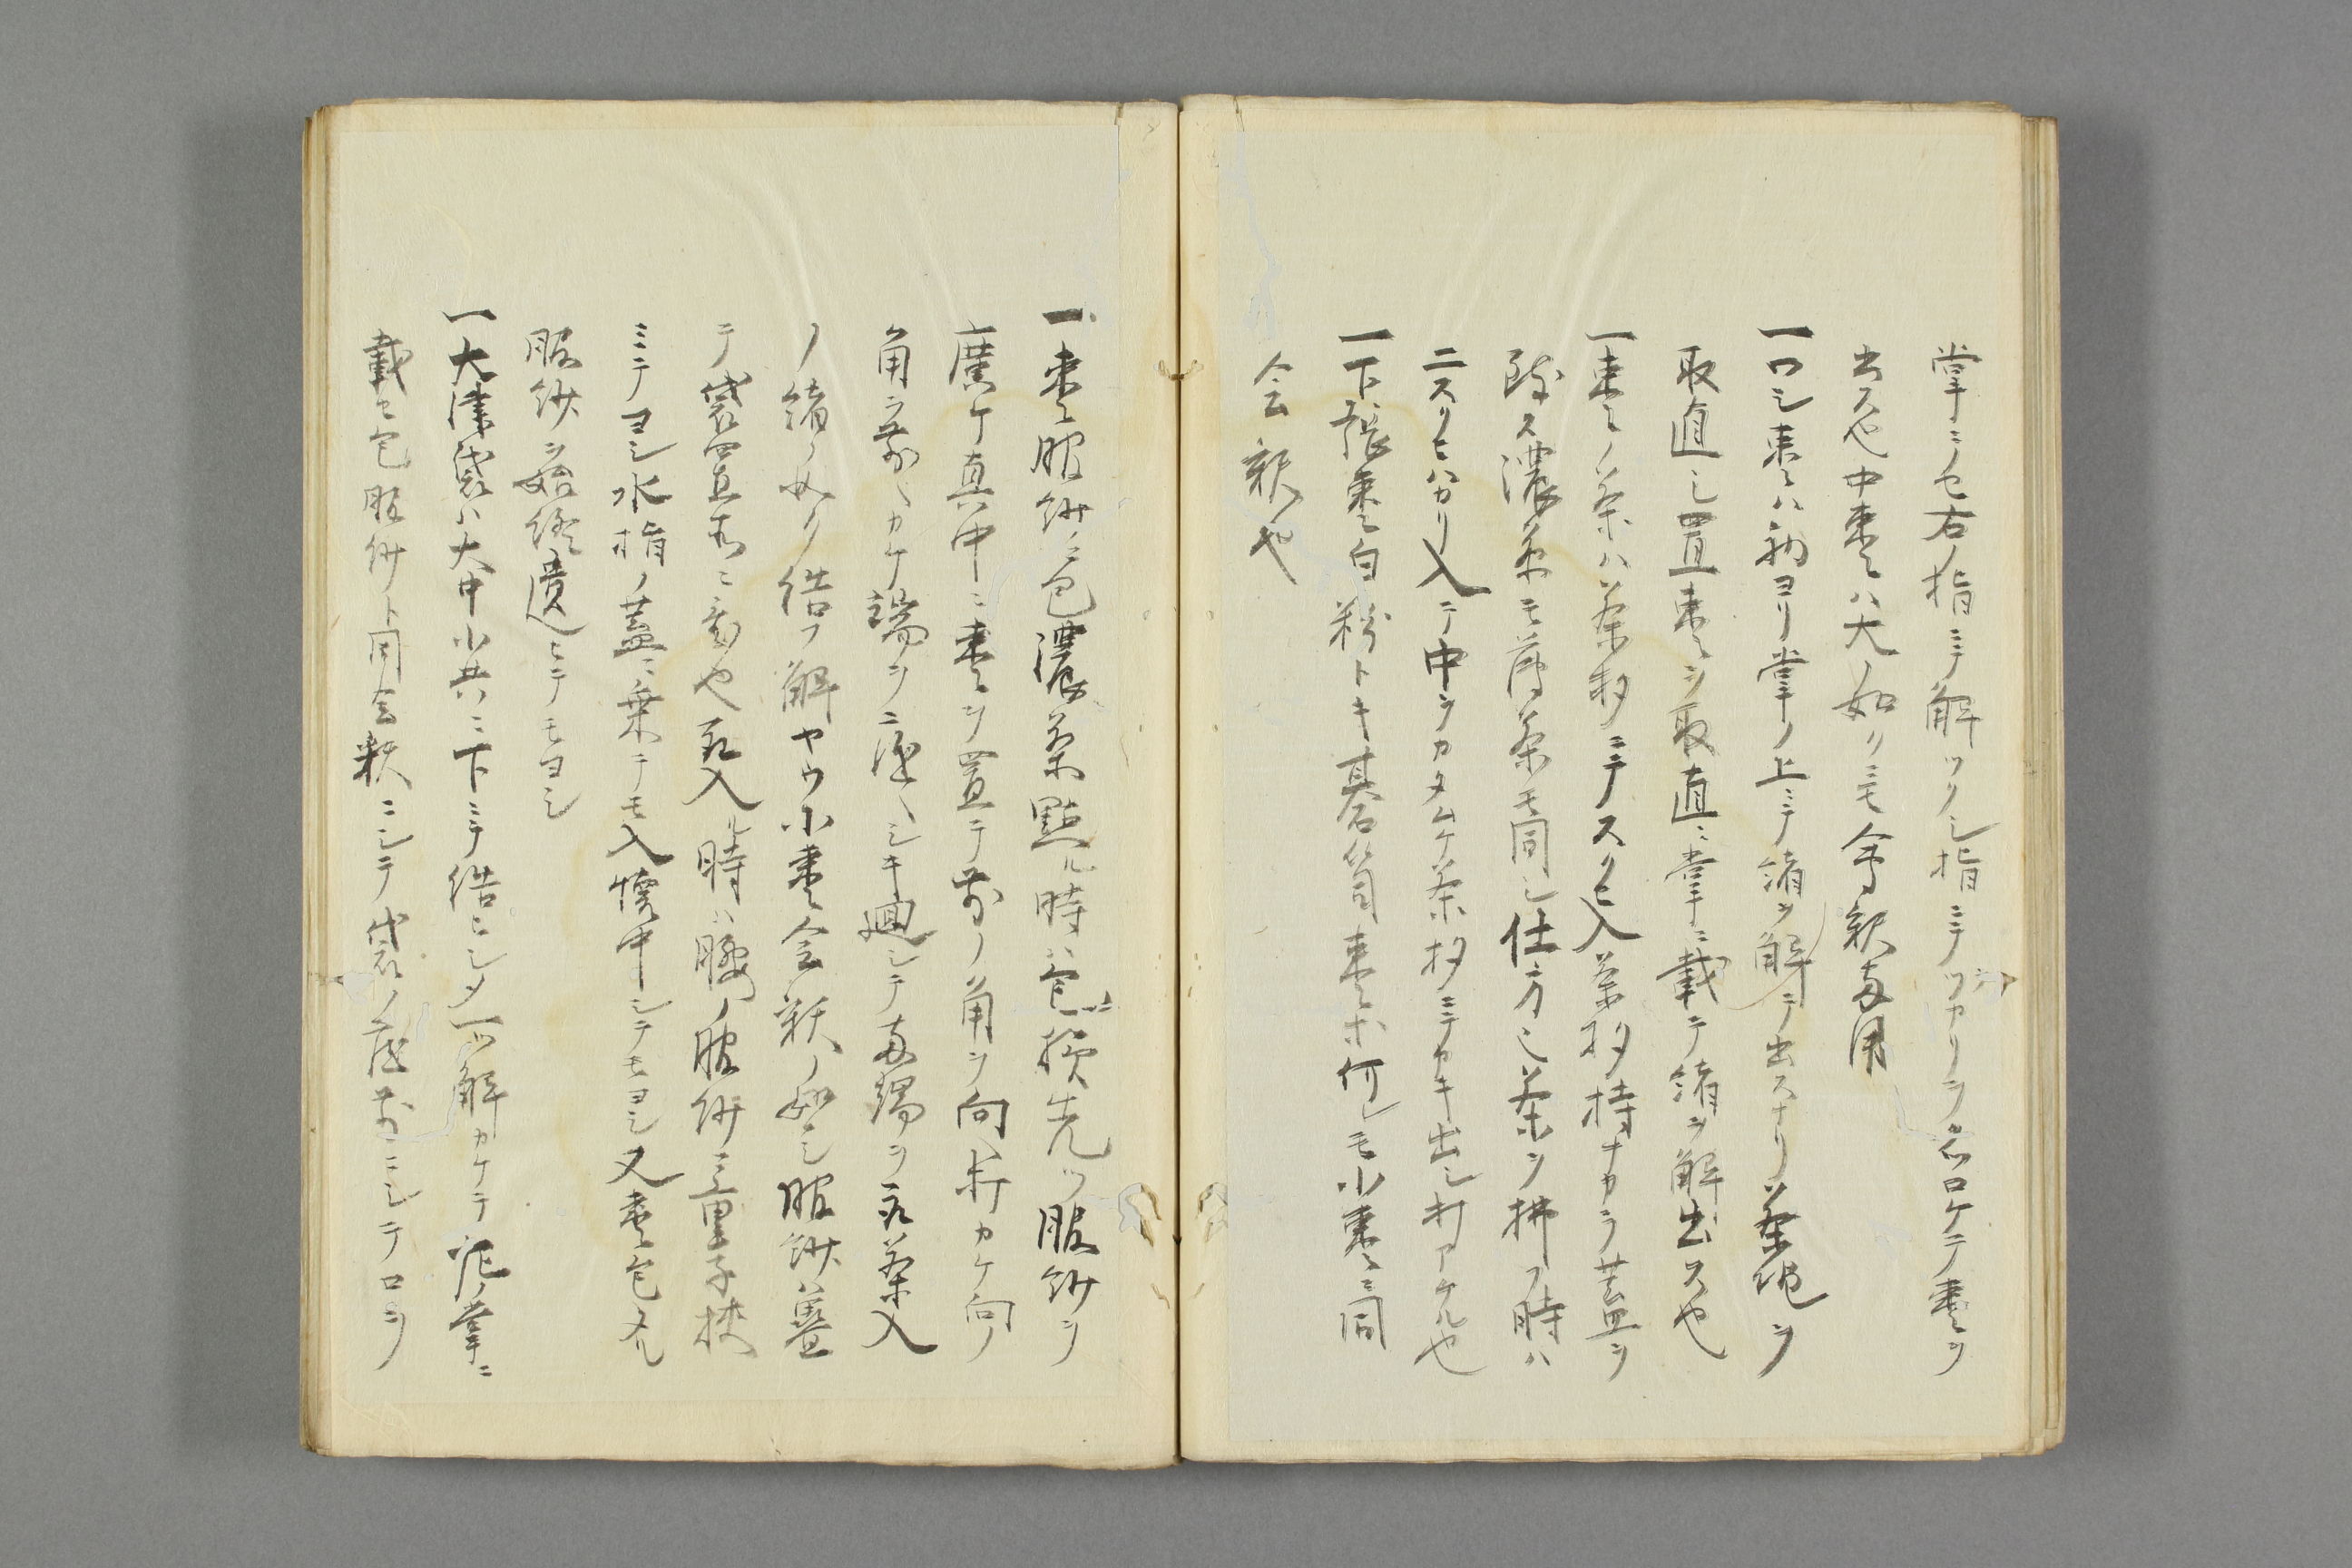 掌ニノセ右ノ指ニテ解ツシ指ニテツヤリヲクツロケテ棗ヲ
出ス也中棗ハ大ノ如クニモ会釈両用
一ロシ棗ハ初ヨリ掌ノ上ニテ緒ヲ解テ出スナリ茶碗ヲ
取直シ置棗ヲ取直ニ掌ニ載テ緒ヲ解出ス也
一棗ノ茶ハ茶杓ニテスクヒ入茶杓持ナカラ蓋ヲ
スル濃茶モ薄茶モ同シ仕方也茶ヲ掃フ時ハ
ニスクヒハカリ入テ中ヲカタムケ茶杓ニテカキ出シ打アケル也
一下張棗白粉トキ碁笥棗ナト何レモ小棗ニ同
会釈也
一棗服紗包濃茶點ル時ハ包様先ツ服紗ヲ
廣ケ真中ニ棗ヲ置テ前ノ角ヲ向ヘ打カケ向ノ
角ヲ前ヘカケ端ヲニ重ヘシキ廻シテ両端ヲ取茶入
ノ緒ノ如ク結フ解ヤウ小棗会釈ノ如シ服紗ハ蓋
テ袋置所ニ置也取入ル時ハ腰ノ服紗ニ重子挟
ミテヨシ水指ノ蓋ニ乗テモ入懐中シテモヨシ又棗包タル
服紗ヲ始終遣ヒテモヨシ
一大津袋ハ大中小共ニ下ニテ結ヒシメ一ツ解カケテ掌ニ
載セ包服紗ト同会釈ニシテ袋ノ底前ニシテロヲ